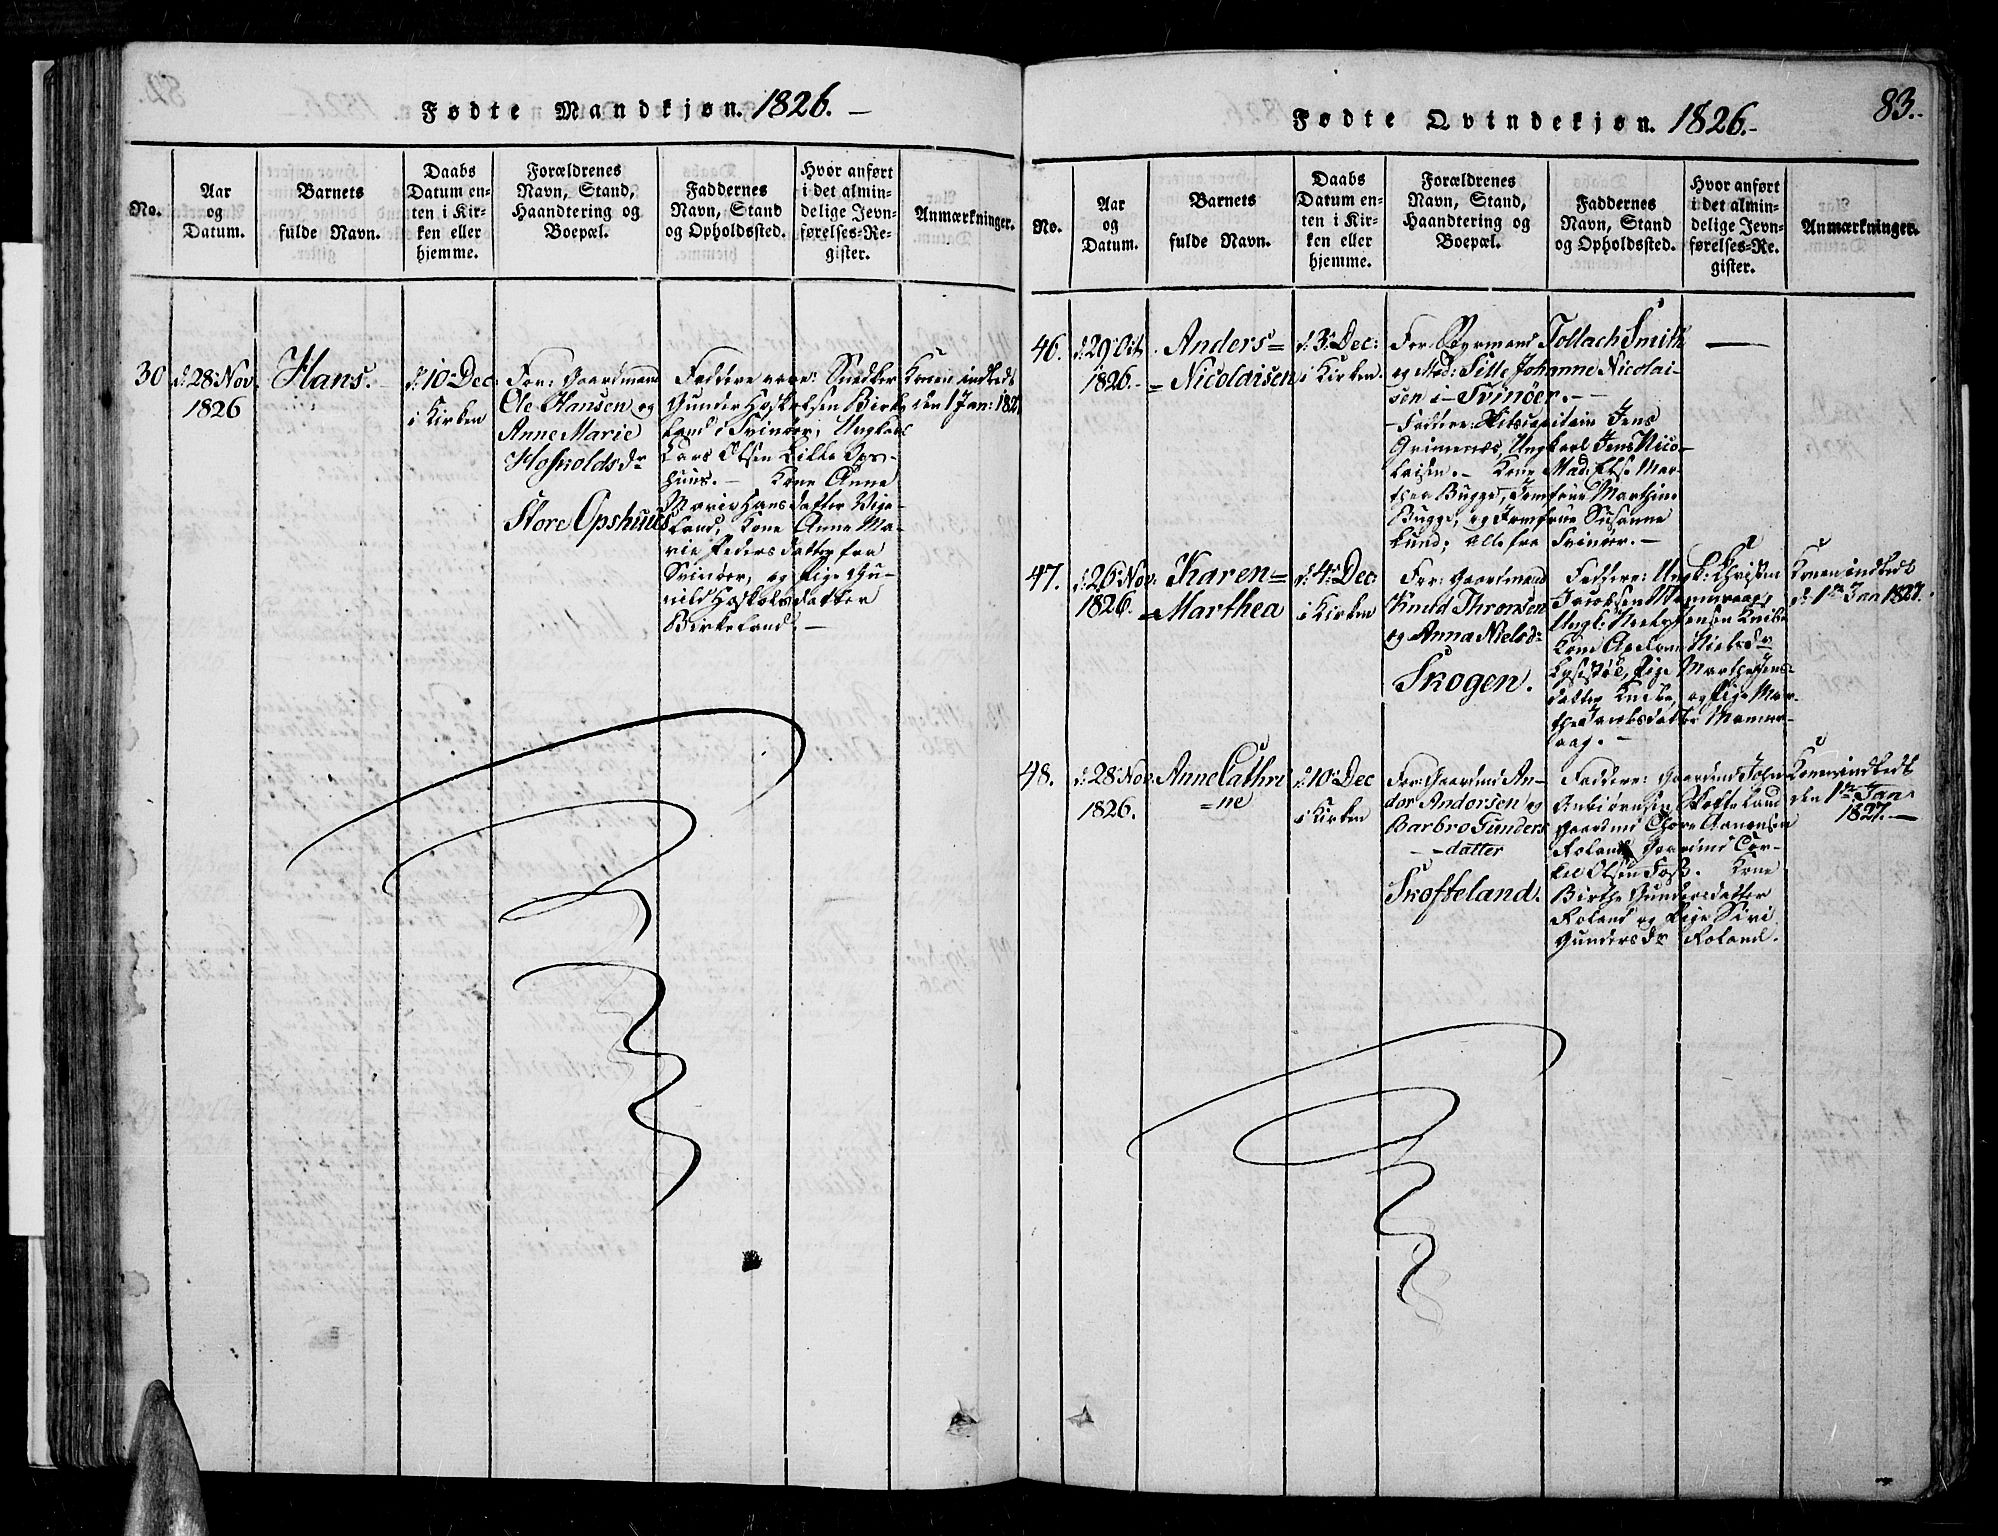 Fødte Mandkjøn. 1826.
No.
Aar
og
Datum.
Barnets
fulde Navn.
Daabs
Datum en-
ten i Kir-
ken eller
hjemme.
Forældrenes
Navn, Stand,
Haandtering og
Boepæl.
Faddernes
Navn, Stand
og Opholdssted.
Hvor anført
i det almin-
delige Jevn-
førelses-Re-
gister.
Anmærkninger.
30
d: 28: Nov.
1826
Hans.
d: 10: Dec:
i Kirken
For: Gaardmand
Ole Hansen og
Anne Marie
Hoskoldsdr
Store Opshuus
Faddere vare: Snedker
Gunder Hoskolsen Birke
land i Svinøer, Ungkarl
Lars Olsen Lille Ops-
huus. - Kone Anne
Marie Hansdatter Vige-
land, Kone Anne Ma-
rie Pedersdatter fra
Svinøer, og Pige Gu-
nild Hoskolsdatter
Birkeland. -
Konen indledt
den 1 Jan: 182
83.
Fødte Qvindekjøn. 1826.
No.
Aar
og
Datum.
Barnets
fulde Navn.
Daabs
Datum en-
ten i Kir-
ken eller
hjemme.
Forældrenes
Navn, Stand,
Haandtering og
Boepæl.
Faddernes
Navn, Stand
og Opholdssted.
Hvor anført
i det almin-
delige Jevn-
førelses-Re-
gister.
Anmærkninger.
46.
d: 29: Oct
1826.
Anders=
=Nicolaisen
d: 3: Dec:
i Kirken.
For: Tollach Smith
og Mad: Sille Johanne Nicolai-
sen i - Svinøer. -
- Faddere: Jens
Grimenæs, Ungkarl Jens Nico-
laisen. - Kone Mad: Else Mar-
thea Bugge, Jomfrue Marthine
Bugge, og Jomfrue Susanne
Lund; alle fra Svinøer. -
47.
d: 26: Nov.
1826.
Karen=
-Marthea
d: 4: Dec
i Kirken
For: Gaardmand
Knud Thronsen
og Anna Nielsd:
Skogen.
Faddere: Ungk: Christen
Jacobsen
Jensen
Kone Nielsdr
Pige Marthe Jens-
datter og Pige Mar-
thea Jacobsdatter
Konen indledt
d: 1ste Jan 1827.
48.
d: 28: Nov.
1826.
Anne Cathri
=ne
d: 10: Dec
i Kirken
For: Gaardmd An-
der Andersen og
Barbro Gunders
- -datter
Skofteland.
Faddere: Gaardmd John
Anbiørnsen Skofteland
Gaardmd Thore Aanensen
Roland, Gaardmd Tor-
kel Olsen Foss. Kone
Birthe Gundersdatter
Roland og Pige Siri
Gundersdr Roland.
Konen indledt
den 1ste Jan:
1827. -